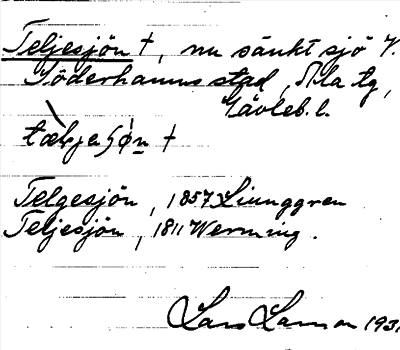 Teljesjön †, nu sänkt sjö V.
Söderhamns stad, Ala tg,
Gävleb. l.
Telgesjön, 1857 Ljunggren
Teljesjön, 1811 Wermning.
Lars 1931